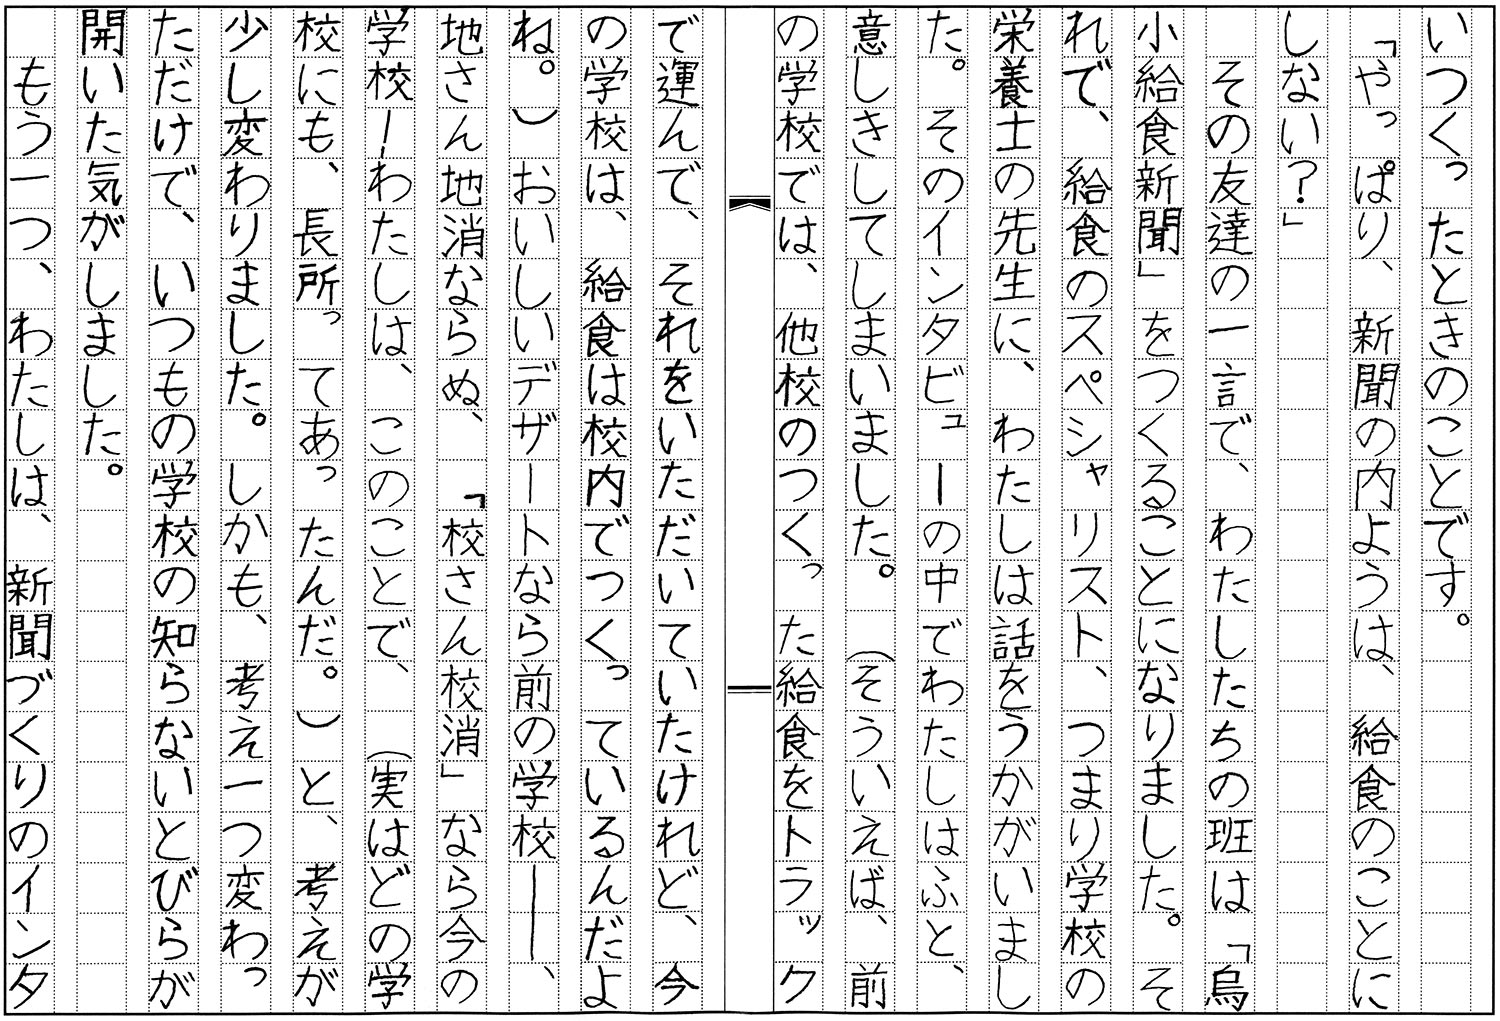 いつくったときのことです。
「やっぱり、新聞の内ようは、給食のことに
しない？」
その友達の一言で、わたしたちの班は「烏
小給食新聞」をつくることになりました。そ
れで、給食のスペシャリスト、つまり学校の
栄養士の先生に、わたしは話をうかがいまし
た。そのインタビューの中でわたしはふと、
意しきしてしまいました。（そういえば、前
の学校では、他校のつくった給食をトラック
で運んで、それをいただいていたけれど、今
の学校は、給食は校内でつくっているんだよ
ね。）おいしいデザートなら前の学校――、
地さん地消ならぬ、「校さん校消」なら今の
学校―わたしは、このことで、（実はどの学
校にも、長所ってあったんだ。）と、考えが
少し変わりました。しかも、考え一つ変わっ
ただけで、いつもの学校の知らないとびらが
開いた気がしました。
もう一つ、わたしは、新聞づくりのインタ